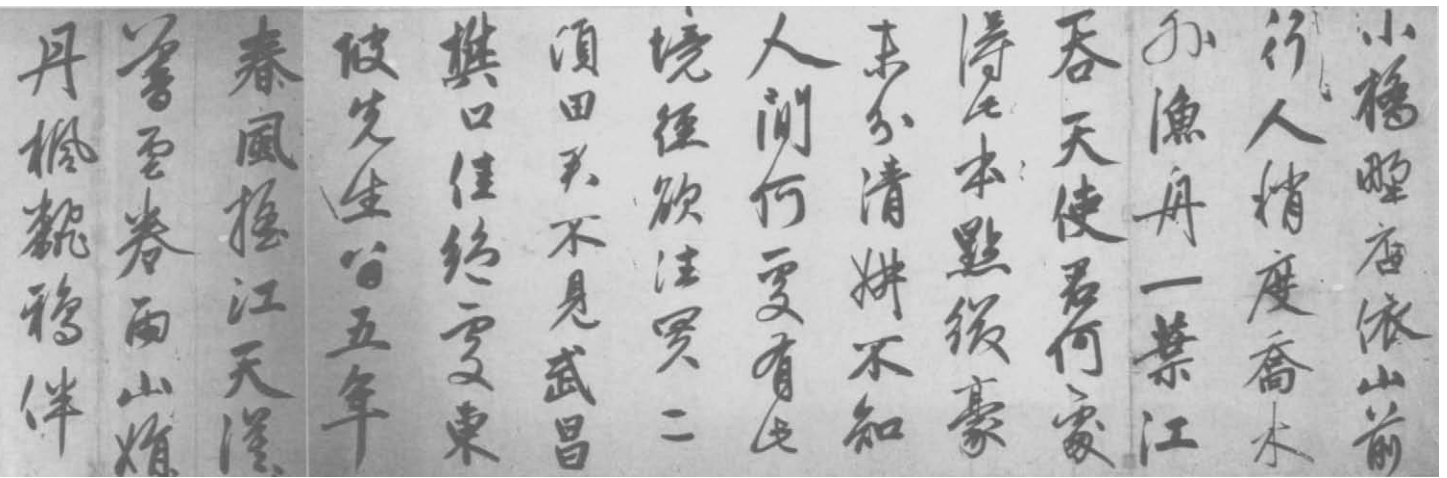 小橋野店依山前
行人稍度喬木
外漁舟一葉江
吞天使君何處
得此本點綴豪
末分清妍不知
人間何處有此
境徑欲往買二
頃田君不見武昌
樊口佳絕處東
坡先生留五年
春風搖江天漠〻
暮雲卷雨山娟〻
丹楓飜鴉伴